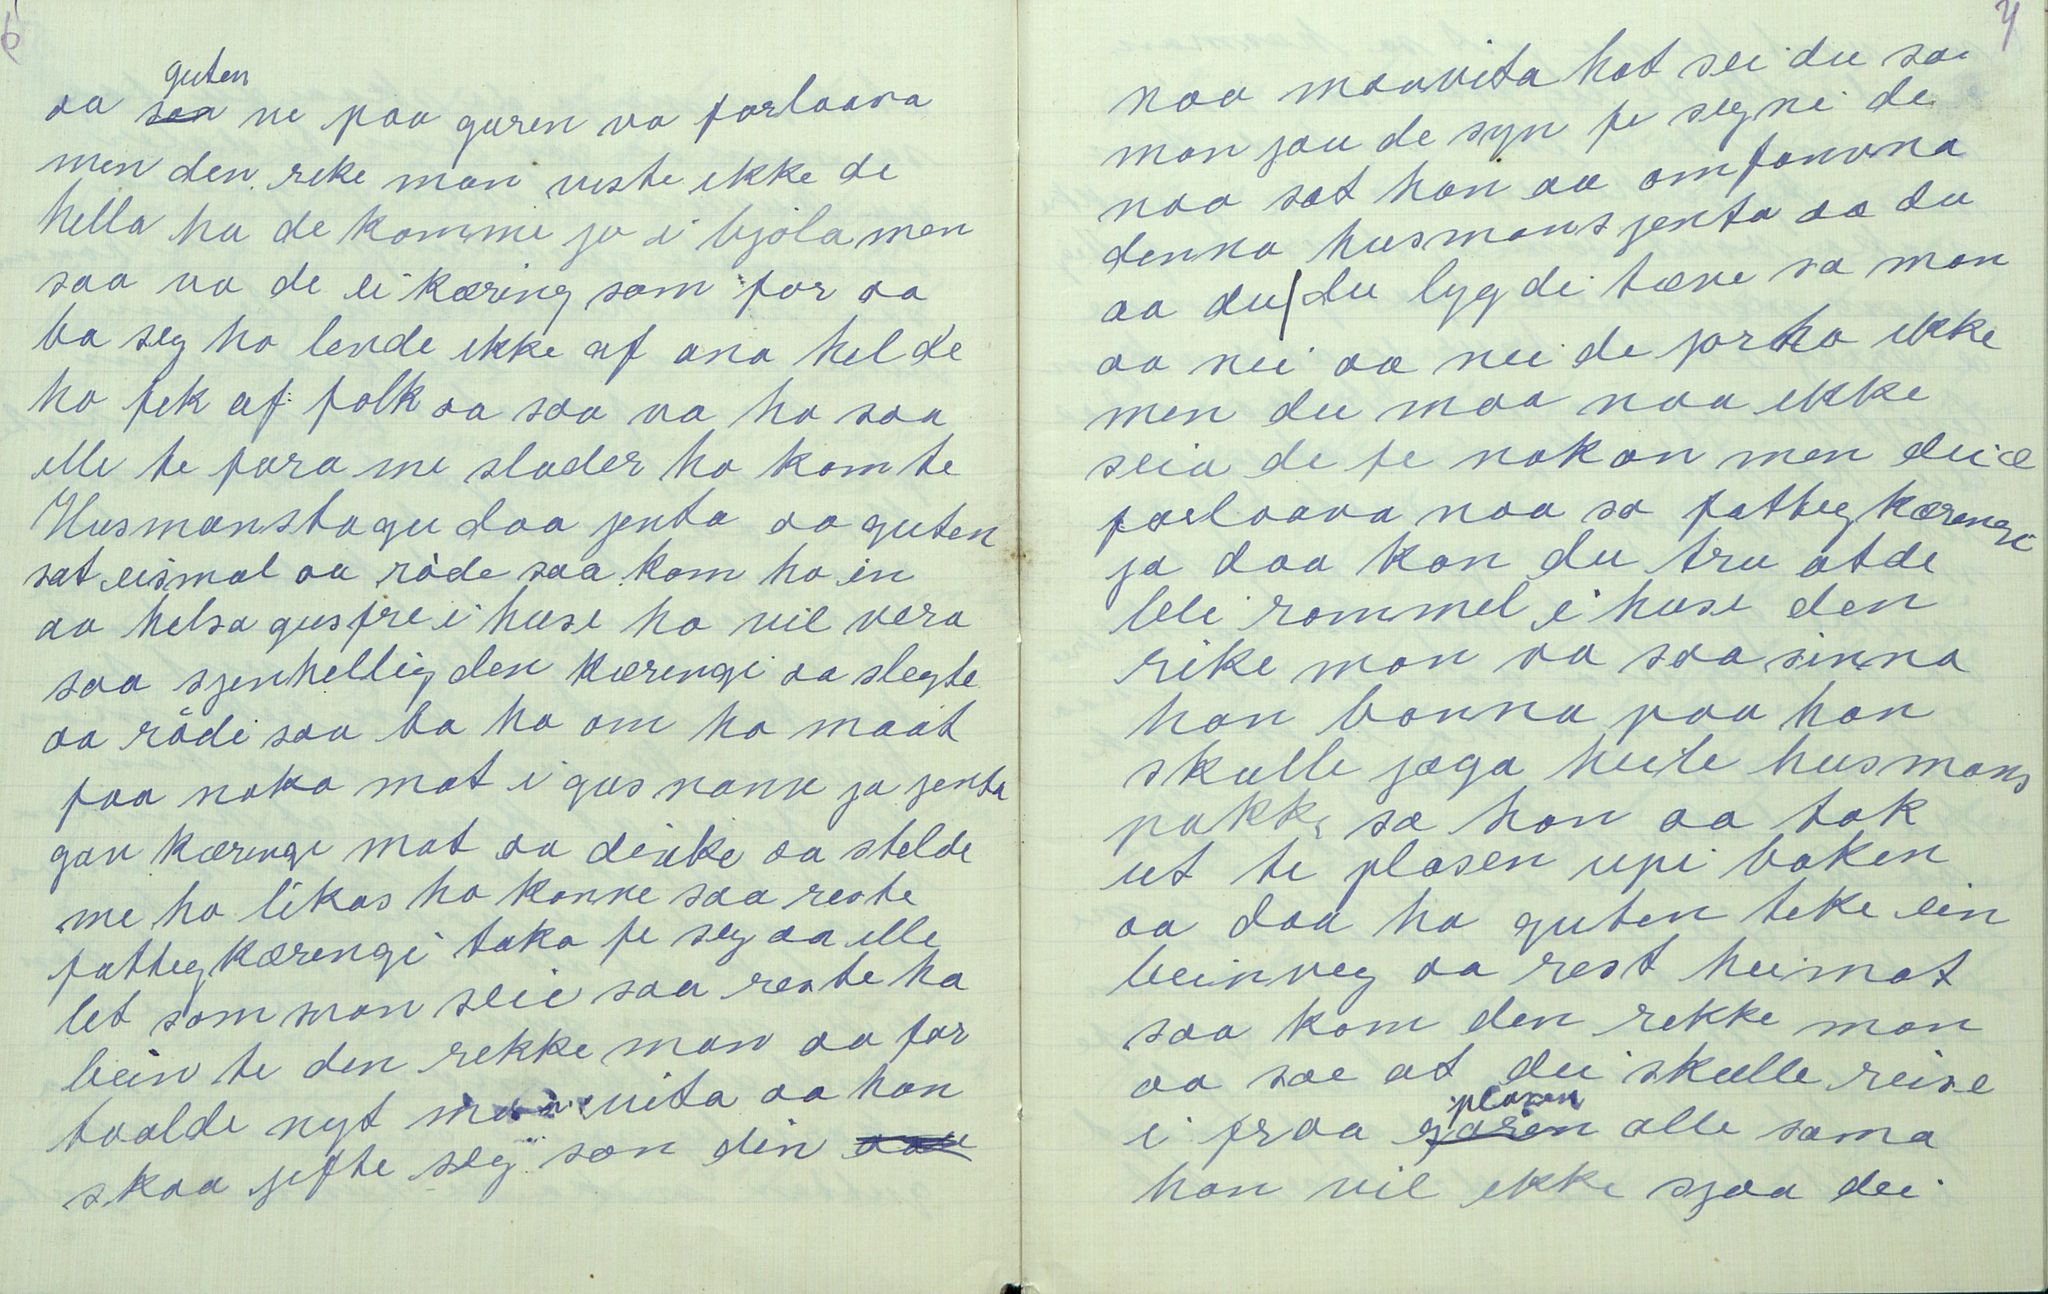 6
guten
aa saa ne paa garen va forlaava
men den rike man viste ikke de
hella ha de kommi jo i bjöla men
saa va de ei kæring som for aa
ba seg ho levde ikke af ana hel de
ho fek af folk aa saa va ho saa
elle te fara me slader ho kom te
Husmanstagu daa jenta aa guten
sat eismal aa röde saa kom ho in
aa helsa gusfre i huse ho vil vera
saa sjenhellig den kærengi aa slegte
aa rödi saa ba ho om ho maat
faa noko mat i gus navn ja jenta
gav kærengi mat aa dreke aa stelde
me ho likas ho konne saa reste
fattegkærengi tako fe seg aa elle
let som man seie saa reste ho
bein te den rekke man aa for
taalde nyt vita aa han
skaa jifte seg son din
7
naa maavita hot sei du sa
man jau de syn fe segni de
naa sat han aa omfavvna
denna husmansjenta aa du
aa du/du lyg di tæve sa man
aa nei aa nei de jor ho ikke
men du maa naa ikke
seia de fe nokon men dei æ
forlaava naa sa fattegkærengi
ja daa kan du tru atde
blei rommel i huse den
rike man va saa sinna
han banna paa han
skulle jaga heile husmans
pakk sa han aa tok
ut te plasen upi baken
aa daa ha guten teke ein
beinveg aa rest heimat
saa kom den rekke man
aa sae at dei skulle reise
plasen
i fraa garen alle sama
han vil ikke sjaa dei